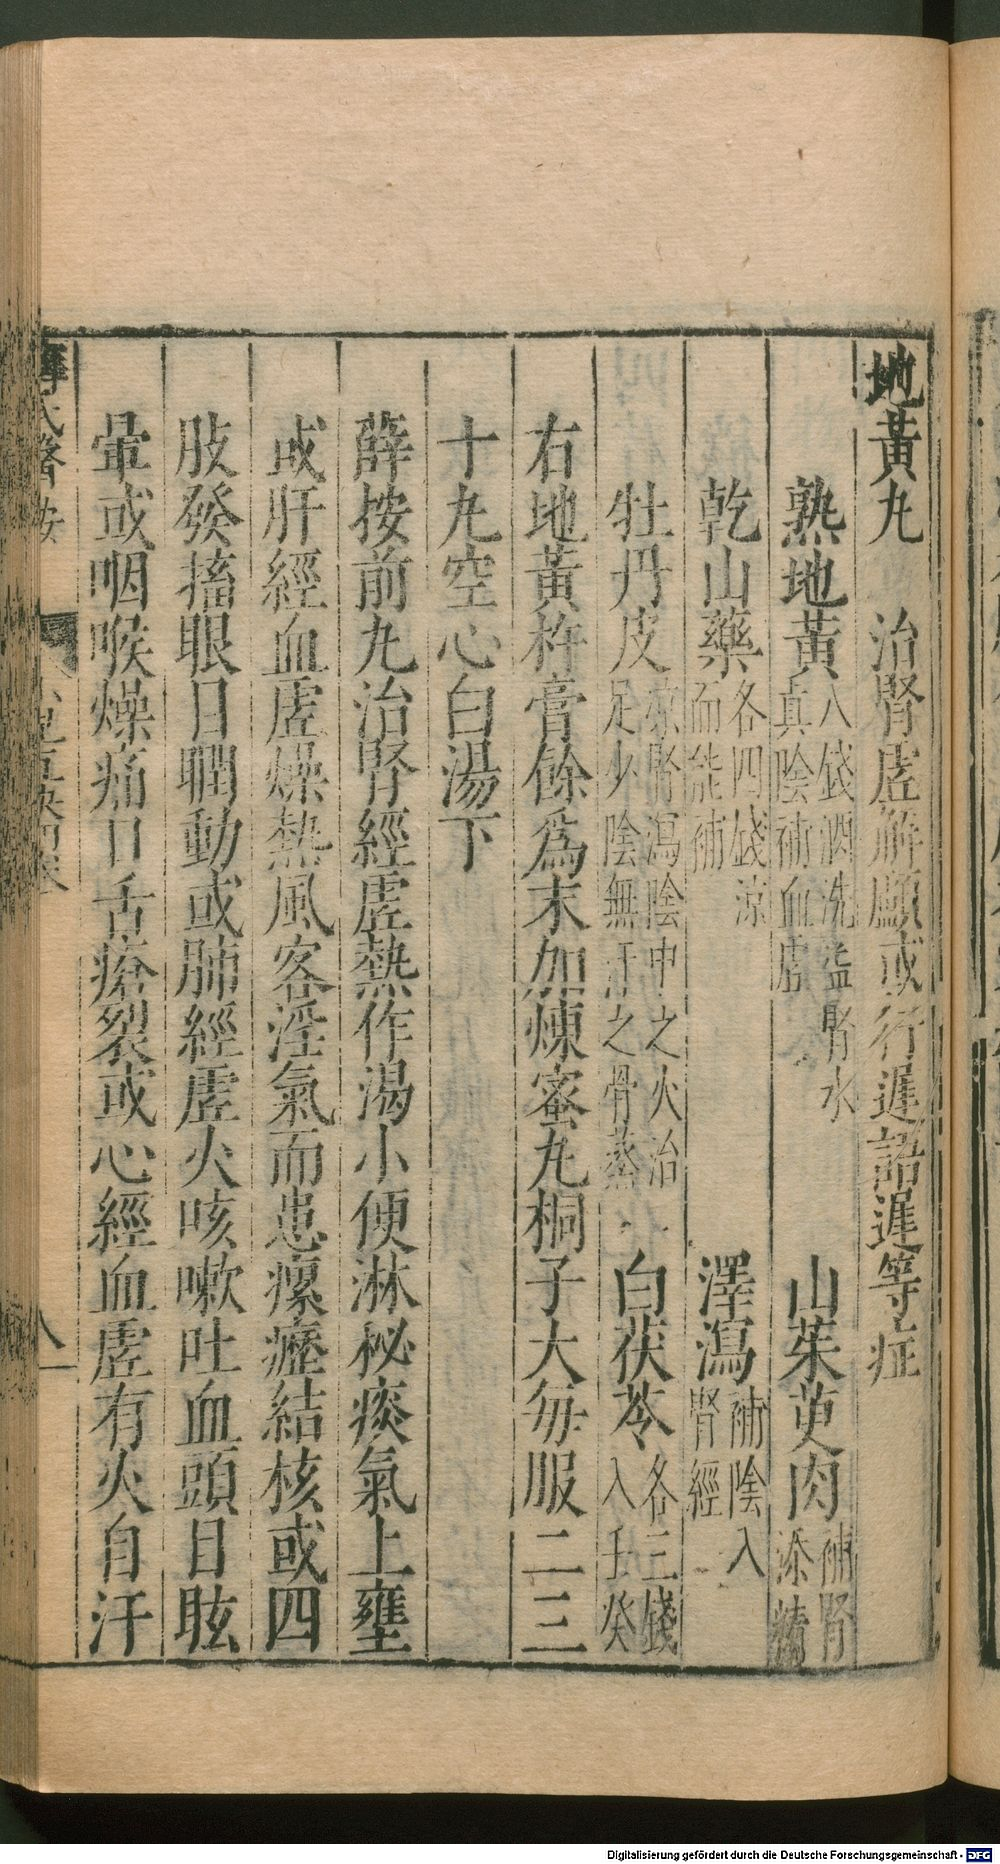 地黃丸　治腎虗解顱或行遲語遲等症
熟地黃八錢酒洗滋腎水真陰補血虗　山茱萸肉補腎添精
乾山藥各四錢涼而能補　澤瀉補陰入腎經
牡丹皮凉腎瀉陰中之火治足少陰無汗之骨蒸　白茯苓各三錢入壬癸
右地黃杵膏餘爲末加煉蜜丸桐子大每服二三
十丸空心白湯下
薛按前丸治腎經虗熱作渴小便淋秘痰氣上壅
或肝經血虗燥熱風客淫氣而患瘰癧結核或四
肢發搐眼目瞤動或肺經虗火咳嗽吐血頭目眩
暈或咽喉燥痛口舌瘡裂或心經血虗有火自汗
薛氏醫按　小兒直訣四卷　八
Digitalisierung gefördert durch die Deutsche Forschungsgemeinschaft - DFG